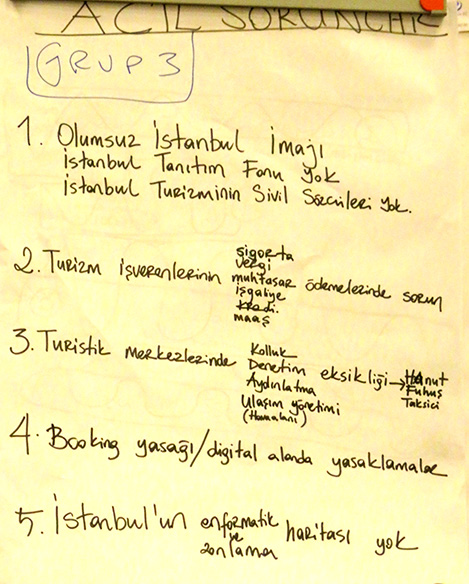 ACİL SORUNLAR
GRUP 3
1. Olumsuz İstanbul İmajı
İstanbul Tanıtım Fonu Yok
İstanbul Turizminin Sivil Sözcüleri Yok.
2. Turizm işverenlerinin sigorta vergi muhtasar işgaliye kredi. maaş ödemelerinde sorun
3. Turistik merkezlerinde Kolluk Denetim Aydınlatma Ulaşım yönetimi (Havaalanı) eksikliği → Hanut Fuhuş Taksici
4. Booking yasağı/digital alanda yasaklamalar
5. İstanbul'un enformatik ve zonlama haritası yok